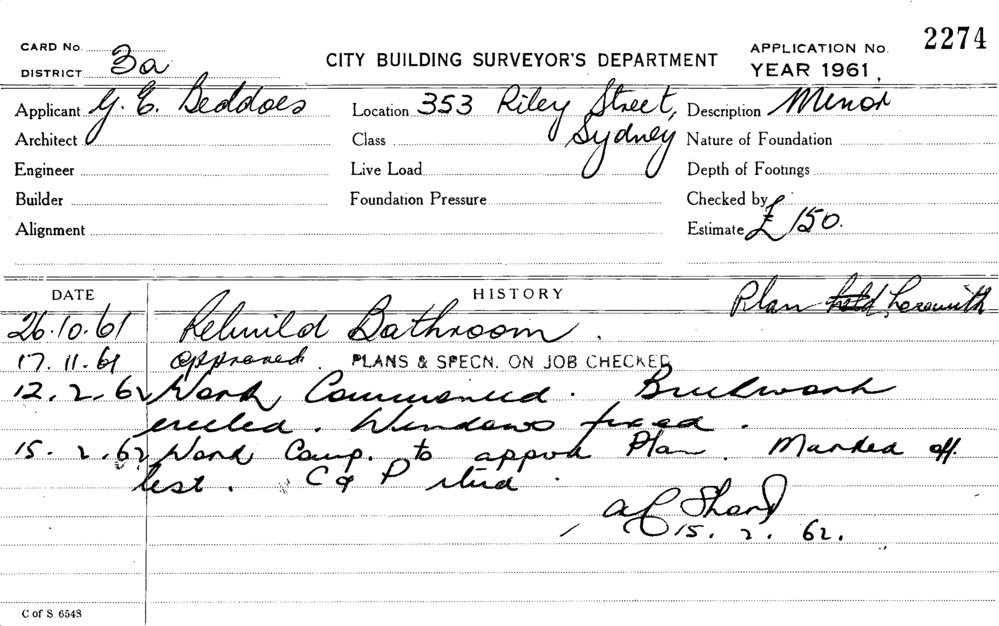 CARD No. 3a
DISTRICT
CITY BUILDING SURVEYOR'S DEPARTMENT
APPLICATION No. 2274
YEAR 1961,
Applicant G. E. Beddoes Location 353 Riley Street, Sydney Description Minor
Architect Class Nature of Foundation
Engineer Live Load Depth of Footings
Builder Foundation Pressure Checked by
Alignment Estimate £150.
DATE HISTORY Plan held herewith
26.10.61 Rebuild Bathroom.
17.11.61 approved. PLANS & SPECN. ON JOB CHECKED
12.2.62 Work Commenced. Brickwork
erected. Windows fixed.
15.2.62 Work Comp. to appvd Plan. Marked off
list. C & P
15.2.62.
C of S 6543